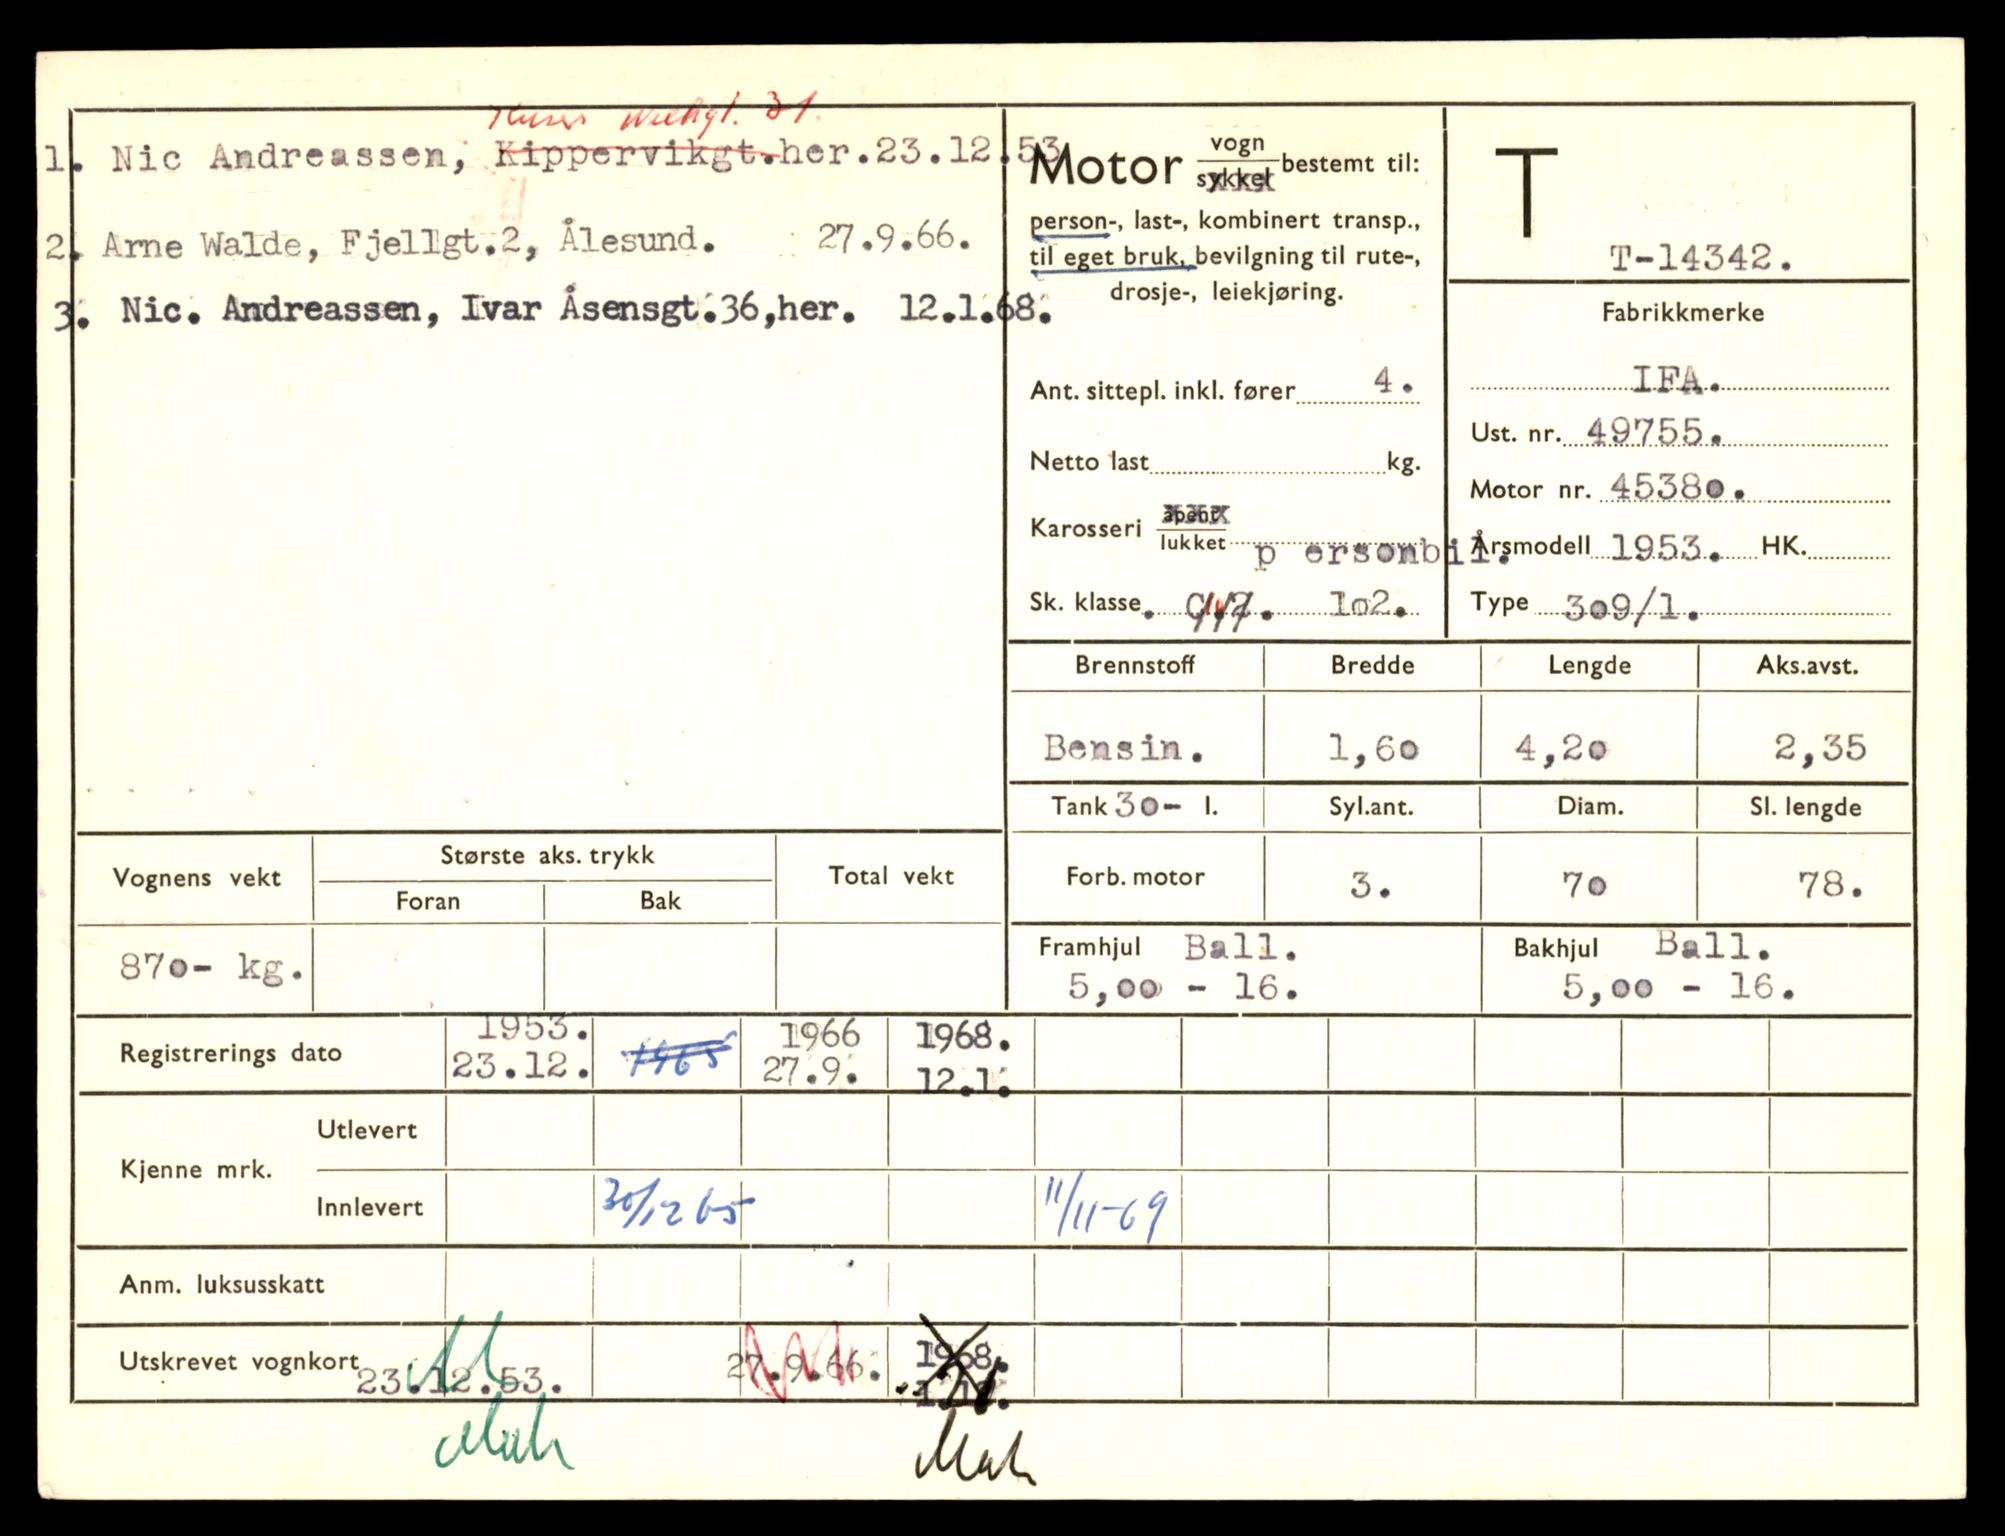 Keiser Wilhgt. 31.
1. Nic Andreassen, Kippervikgt.her.23.12.53
2. Arne Walde, Fjellgt.2, Ålesund. 27.9.66.
3. Nic. Andreassen, Ivar Åsensgt.36,her. 12.1.68.
Motor vogn sykkel bestemt til:
person-, last-, kombinert transp.,
til eget bruk, bevilgning til rute-,
drosje-, leiekjøring.
Ant. sittepl. inkl. fører 4.
Netto last kg.
Karosseri åpent lukket personbil.
Sk. klasse 102.
T
T-14342.
Fabrikkmerke
IFA.
Ust. nr. 49755.
Motor nr. 45380.
Årsmodell 1953. HK.
Type 309/1.
Brennstoff Bredde Lengde Aks.avst.
Bensin. 1,60 4,20 2,35
Tank 30- l. Syl.ant. Diam. Sl. lengde
Forb. motor 3. 70 78.
Framhjul Ball. Bakhjul Ball.
5,00 - 16. 5,00 - 16.
Vognens vekt Største aks. trykk Total vekt
Foran Bak
870- kg.
Registrerings dato 1953. 1965 1966 1968.
23.12. 27.9. 12.1.
Kjenne mrk. Utlevert
Innlevert 30/12 65 11/11-69
Anm. luksusskatt
Utskrevet vognkort 23.12.53. 27.9.66. 1968.